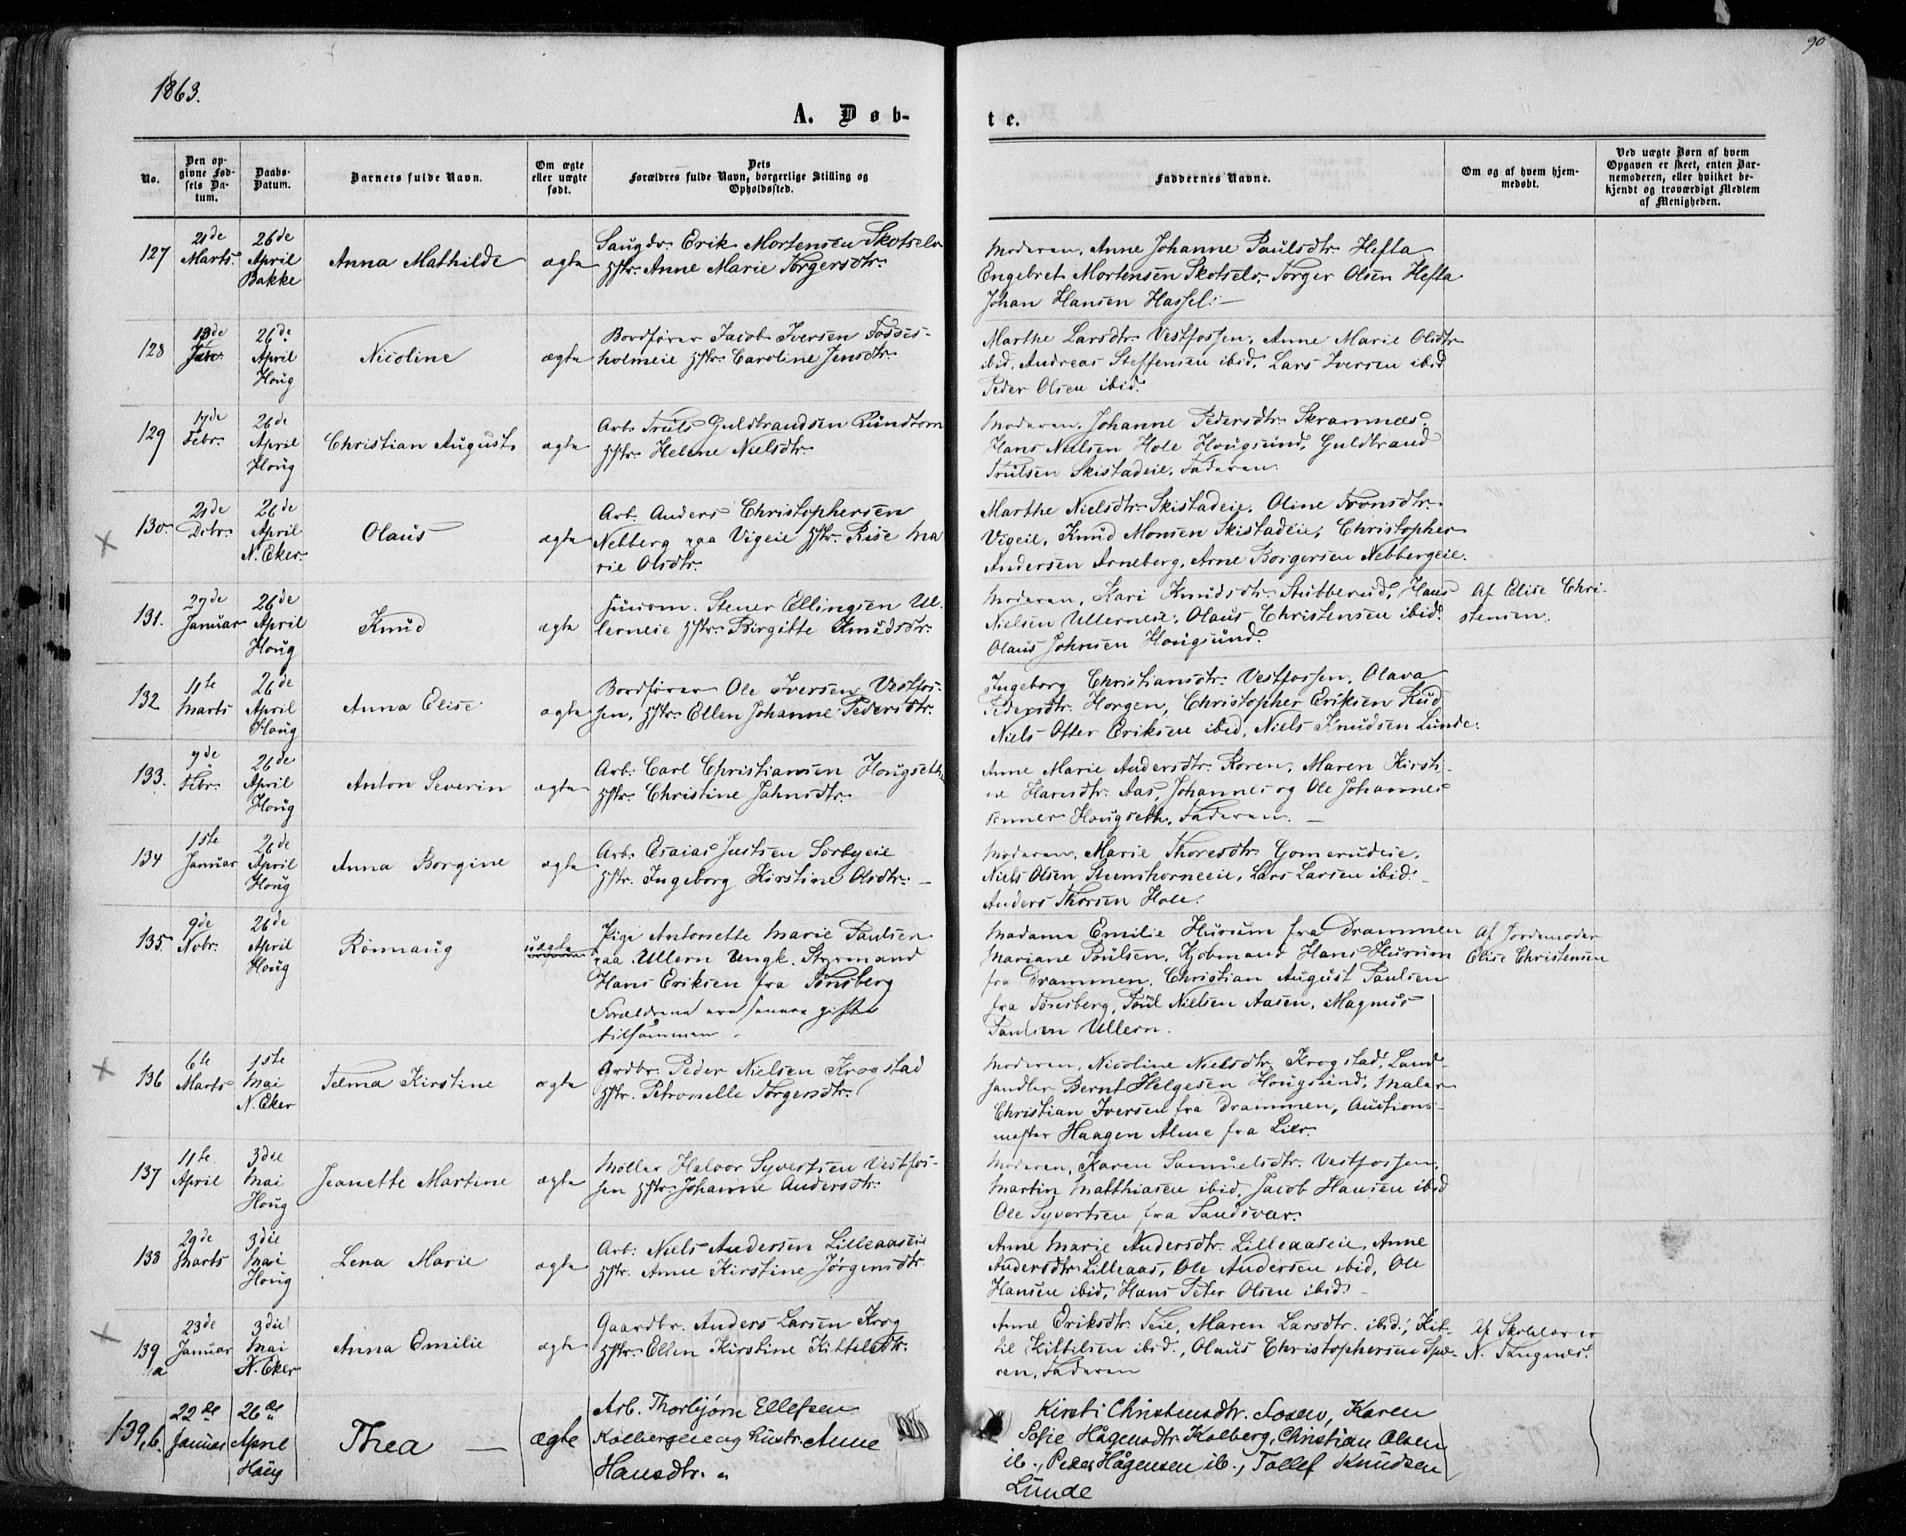 1863.
90
A. Døb-
te.
No.
Den op-
givne Fød-
sels Da-
tum.
Daabs-
Datum.
Barnets fulde Navn.
Om ægte
eller uægte
født.
Dets
Forældres fulde Navn, borgerlige Stilling og
Opholdssted.
Faddernes Navne.
Om og af hvem hjem-
medøbt.
Ved uægte Børn af hvem
Opgaven er skeet, enten Bar-
nemoderen, eller hvilket be-
kjendt og troværdigt Medlem
af Menigheden.
127
21de
Marts
26de
April
Bakke
Anna Mathilde
ægte
Saugdr. Erik Mortensen Skotselv
Hstr. Anne Marie Torgersdtr.
Moderen, Anne Johanne Paulsdtr. Hefta
Engebret Mortensen Skotselv. Torger Olsen Hefta
Johan Hansen Hassel. —
128
13de
26de
April
Houg
Nicoline
ægte
Bordfører Jacob Iversen Fosses-
holmeie Hstr. Caroline Jensdtr.
Marthe Larsdtr. Vestfossen, Anne Marie Olsdtr
ibid, Andreas Steffensen ibid, Lars Iversen ibid
Peder Olsen ibid.
129
17de
Febr.
26de
April
Houg
Christian August
ægte
Arb. Truls Guldbrandsen Rundtom
Hstr. Helene Nielsdtr.
Moderen, Johanne Pedersdtr. Skramnæs.
Hans Nielsen Hole Hougsund, Guldbrand
Trulsen Skistadeie, Faderen.
130.
21de
Dcbr.
26de
April
N. Eker.
Olaus
ægte
Arb. Anders Christophersen
Nebberg paa Vigeie Hstr. Rise Ma
rie Olsdtr.
Marthe Nielsdtr. Skistadeie, Oline Tronsdtr.
Vigeie, Knud Monsen Skistadeie, Christopher
Andersen Arneberg, Arne Borgersen Nebbergeie.
131.
27de
Januar
26de
April
Houg
Knud
ægte
Huusm. Stener Ellingsen Ul-
lerneie Hstr. Birgitte Knudsdtr.
Moderen, Kari Knudsdtr. Stubberud, Hans
Nielsen Ullerneie, Olaus Christensen ibid.
Olaus Johnsen Hougsund.
Af Elise Chri-
stensen.
132
11te
Marts
26de
April
Houg
Anna Elise
ægte
Bordfører Ole Iversen Vestfos-
sen, Hstr. Ellen Johanne Pedersdtr.
Ingeborg Christiansdtr. Vestfossen, Olava
Pedersdtr. Horgen, Christopher Eriksen Rud
Niels Otter Eriksen ibid, Niels Knudsen Lunde.
133.
7de
Febr.
26de
April
Houg
Anton Severin
ægte
Arb. Carl Christiansen Hougseth
Hstr. Christine Jahnsdtr.
Anne Marie Andersdtr. Roren, Maren Kirsti-
ne Hansdtr. Aas, Johannes og Ole Johannes
sønner Hougseth, Faderen. —
134
1ste
Januar
26de
April
Houg
Anna Borgine
ægte
Arb. Esaias Justsen Sorbyeie
Hstr. Ingeborg Kirstine Olsdtr. —
Moderen, Marie Thoresdtr. Gomerudeie,
Niels Olsen Steenshorneeie, Lars Larsen ibid.
Anders Thorsen Hole.
135.
9de
Novbr.
26de
April
Houg
Rønnaug
uægte
Pige Antonette Marie Paulsen
paa Ullern Ungk. Styrmand
Hans Eriksen fra Tønsberg
Forældrene ere senere gifte
tilsammen.
Madame Emilie Hurum fra Drammen
Mariane Poulsen, Kjøbmand Hans Hurum
fra Drammen, Christian August Paulsen
fra Tønsberg, Poul Nielsen Aasen, Magnus
Paulsen Ullern.
Af Jordemoder
Elise Christensen
136
6te
Marts
1ste
Mai
N. Eker
Telma Kirstine
ægte
Grdbr. Peder Nielsen Krogstad
Hstr. Petronelle Torgersdtr.
Moderen, Nicoline Nielsdtr. Krogstad, Land-
handler Bernt Helgesen Hougsund, Maler
Christian Iversen fra Drammen, Auctions-
mester Haagen Alme fra Lier.
137
11te
April
3die
Mai
Houg
Jeanette Martine
ægte
Møller Halvor Syvertsen Vestfos-
sen Hstr. Johanne Andersdtr.
Moderen, Karen Samuelsdtr. Vestfossen,
Martin Matthiasen ibid, Jacob Hansen ibid
Ole Syvertsen fra Sandsvær.
138
29de
Marts
3die
Mai
Houg
Lena Marie
ægte
Arb. Niels Andersen Lilleaaseie
Hstr. Anne Kirstine Jørgensdtr
Anne Marie Andersdtr. Lilleaaseie, Anne
Andersdtr. Lilleaas, Ole Andersen ibid, Ole
Hansen ibid, Hans Peter Olsen ibid. —
139
a
23de
Januar
3die
Mai
N. Eker
Anna Emilie
ægte
Gaardbr. Anders Larsen Krog
Hstr. Ellen Kirstine Kittelsdtr.
Anne Eriksdtr. Teie, Maren Larsdtr. ibid., Kit-
til Kittilsen ibid., Olaus Christophersen
Faderen
Af Skolelærer
N. Tangnæs.
139, b
22de
Januar
26de
April
Houg
Thea —
ægte
Arb. Thorbjørn Ellefsen
Kolbergeie og Hustr. Anne
Hansdtr.
Kirsti Christensdtr. Fosen, Karen
Sofie Hågensdtr. Kolberg, Christian Olsen
ib., Peder Hågensen ib., Tollef Knudsen
Lunde